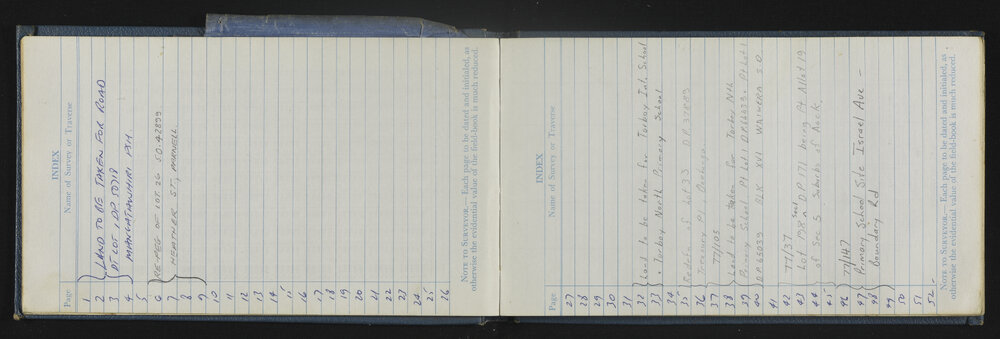 INDEX
Page
Name of Survey or Traverse
1
2 LAND TO BE TAKEN FOR ROAD
3 PT LOT 1, DP 50718
4 MANGATAWHIRI PSH
5
6 RE-PEG OF LOT 26 S.O. 42899
7 HEATHER ST, PARNELL.
8
9
10
11
12
13
14
15
16
17
18
19
20
21
22
23
24
25
26
NOTE TO SURVEYOR.— Each page to be dated and initialed, as
otherwise the evidential value of the field-book is much reduced.
INDEX
Page
Name of Survey or Traverse
27
28
29
30
31
32 Land to be taken for Torbay Int. School
33 " Torbay North Primary School
34
35 of Lot 33 D.P. 37689
36 Pl,
37 77/105
38 Land to be taken for
39 Primary School Pt Lot 1 D.P. & Pt Lot 1
40 D.P. 65039 BLK XVI WAIWERA S.D.
41
42 77/37
43 Lot 98 D.P. 171 being Pt Allot 19
44 of Sec 5 Suburbs of Auck
45
46 77/147
47 Primary School Site Israel Ave —
48 Boundary Rd
49
50
51
52
NOTE TO SURVEYOR.— Each page to be dated and initialed, as
otherwise the evidential value of the field-book is much reduced.